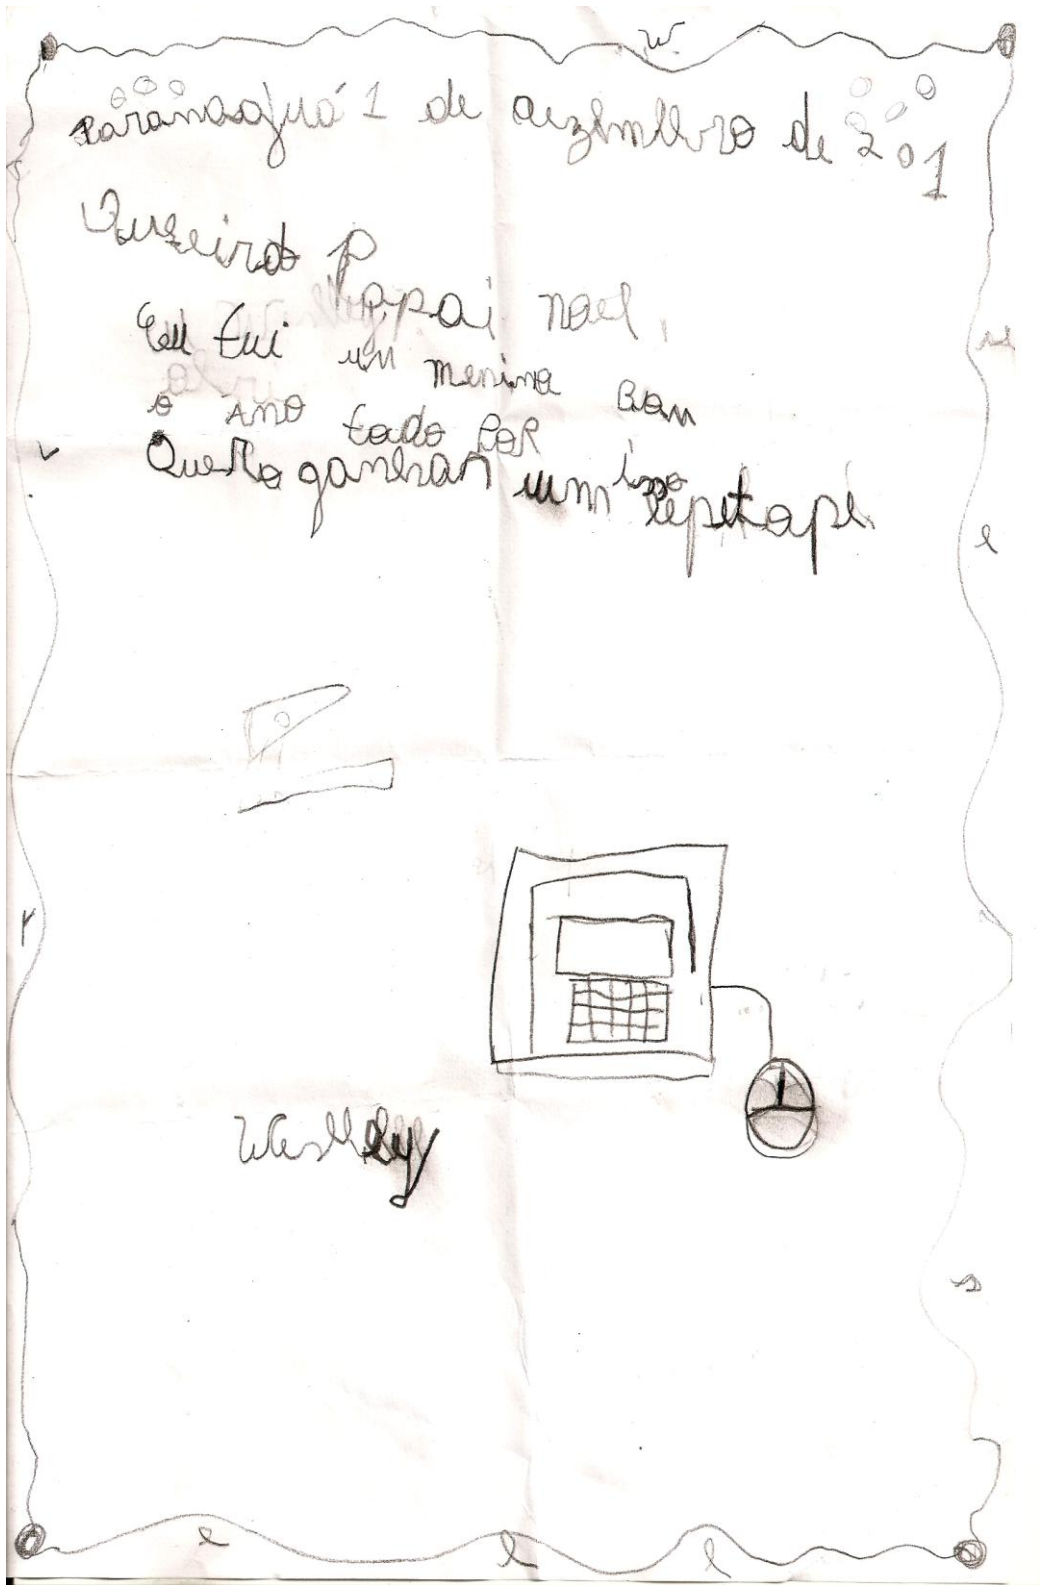 w
Paranaguá 1 de dezembro de 201
Querido P
Papai noel,
Eu fui um menino Bom
o ANO todo POR isso
Quero ganhar um lepitopi
e
Weslley
s
e l l